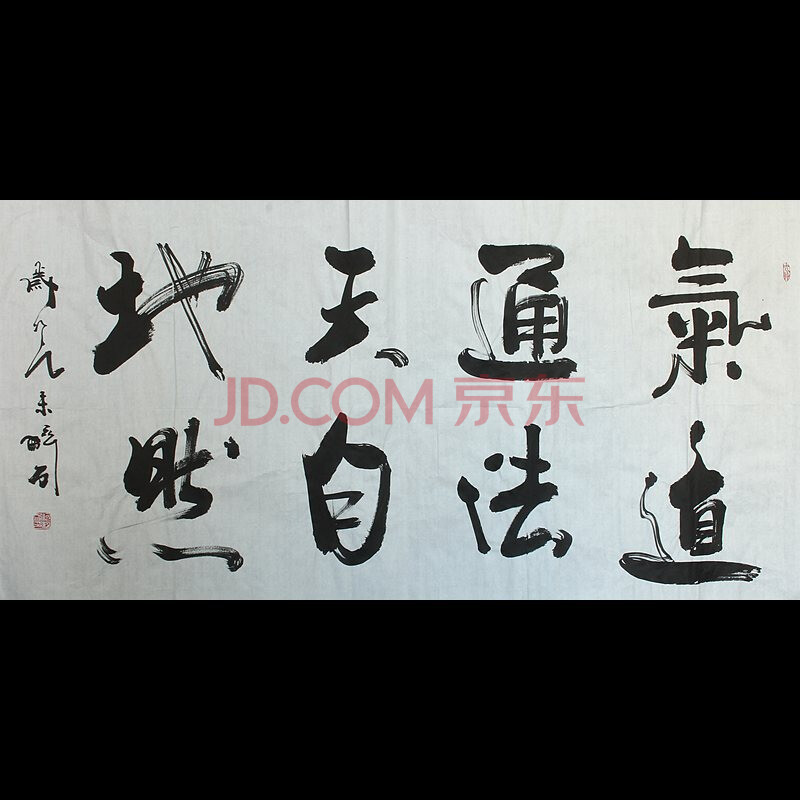 氣通天地
道法自然
JD.COM 京东